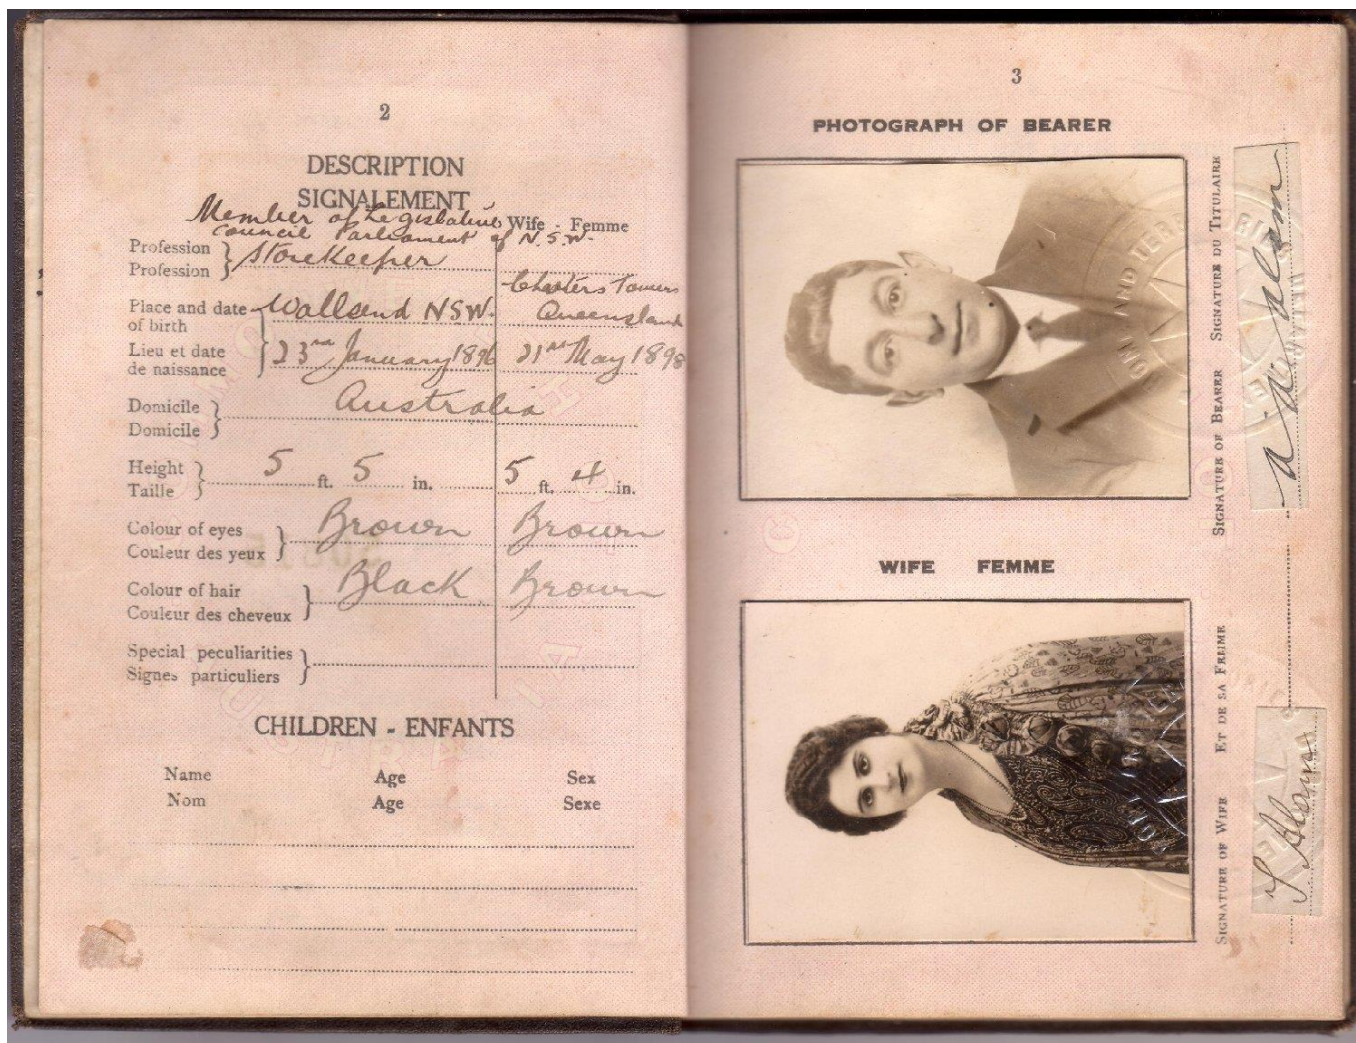 2
DESCRIPTION
SIGNALEMENT
Member of Legislative
Council Parliament of N.S.W.
Wife - Femme
Profession
Profession
Storekeeper
Place and date
of birth
Lieu et date
de naissance
Wallsend NSW.
23rd January 1896
Charters Towers
Queensland
21st May 1898
Domicile
Domicile
Australia
Height
Taille
5 ft. 5 in.
5 ft. 4 in.
Colour of eyes
Couleur des yeux
Brown
Brown
Colour of hair
Couleur des cheveux
Black
Brown
Special peculiarities
Signes particuliers
CHILDREN - ENFANTS
Name Age Sex
Nom Age Sexe
3
PHOTOGRAPH OF BEARER
SIGNATURE OF BEARER SIGNATURE DU TITULAIRE
WIFE FEMME
SIGNATURE OF WIFE ET DE SA FEMME